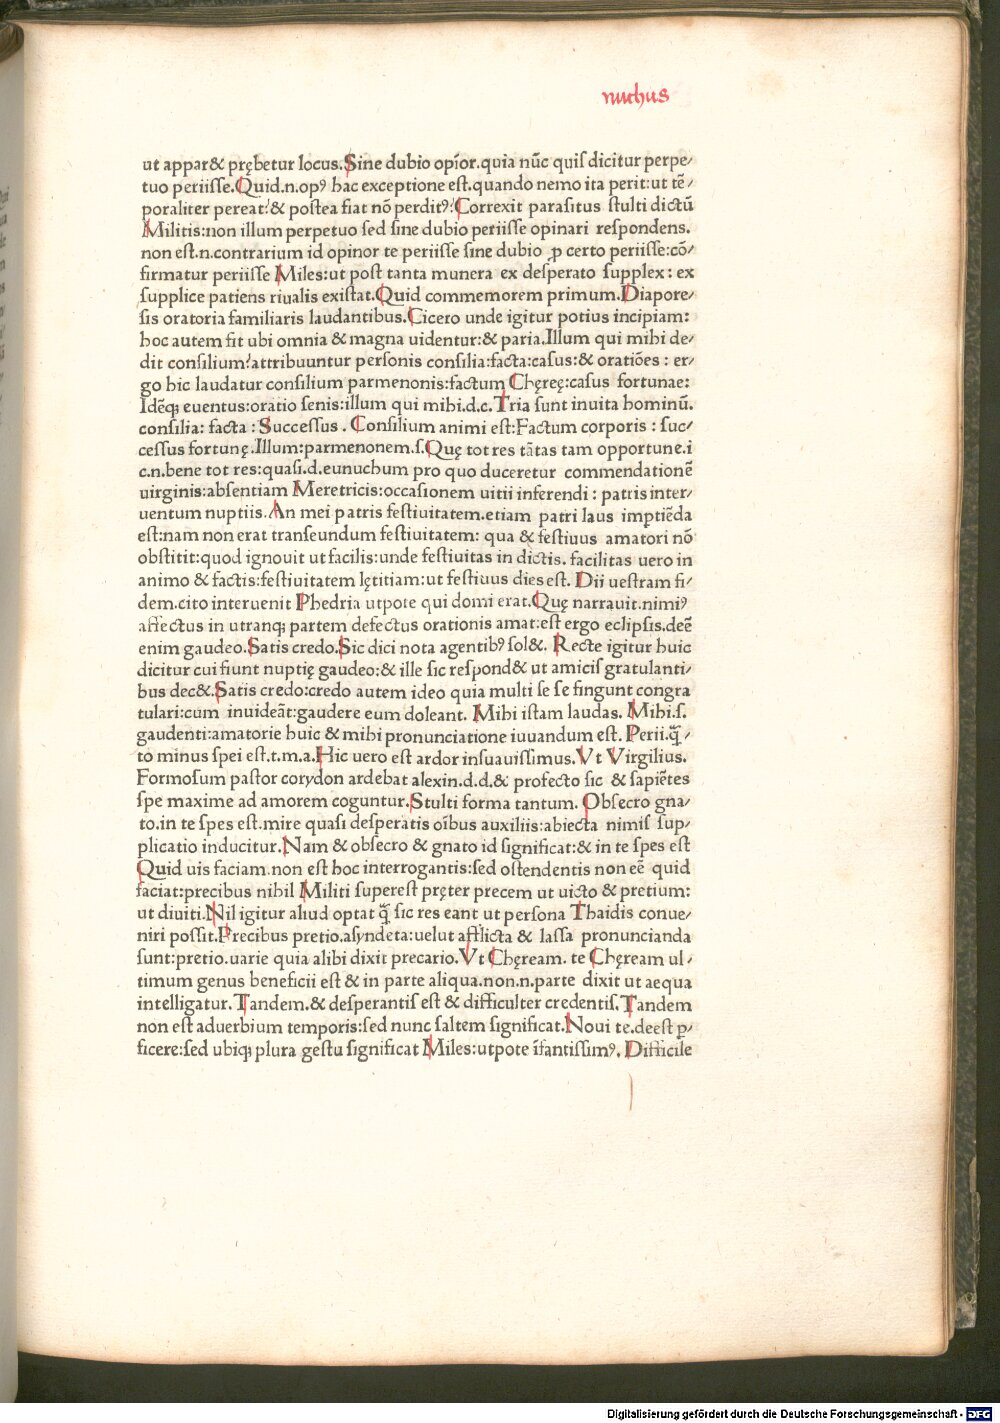 nuchus
ut appar& prębetur locus.Sine dubio opīor.quia nūc quis dicitur perpe-
tuo periisse.Quid.n.opꝰ hac exceptione est.quando nemo ita perit:ut tē-
poraliter pereat:& postea fiat nō perditꝰ?Correxit parasitus stulti dictū
Militis:non illum perpetuo sed sine dubio periisse opinari respondens.
non est.n.contrarium id opinor te periisse sine dubio ꝓ certo periisse:cō-
firmatur periisse Miles:ut post tanta munera ex desperato supplex: ex
supplice patiens riualis existat.Quid commemorem primum.Diapore-
sis oratoria familiaris laudantibus.Cicero unde igitur potius incipiam:
hoc autem fit ubi omnia & magna uidentur:& paria.Illum qui mihi de-
dit consilium?attribuuntur personis consilia:facta:casus:& oratiōes : er-
go hic laudatur consilium parmenonis:factum Chęreę:casus fortunae:
Idēqꝫ euentus:oratio senis:illum qui mihi.d.c.Tria sunt inuita hominū.
consilia: facta : Successus . Consilium animi est:Factum corporis : suc-
cessus fortunę.Illum:parmenonem.s.Quę tot res tātas tam opportune.i
c.n.bene tot res:quasi.d.eunuchum pro quo duceretur commendationē
uirginis:absentiam Meretricis:occasionem uitii inferendi : patris inter-
uentum nuptiis.An mei patris festiuitatem.etiam patri laus imptiēda
est:nam non erat transeundum festiuitatem: qua & festiuus amatori nō
obstitit:quod ignouit ut facilis:unde festiuitas in dictis. facilitas uero in
animo & factis:festiuitatem lętitiam:ut festiuus dies est. Dii uestram fi-
dem.cito interuenit Phedria utpote qui domi erat.Quę narrauit.nimiꝰ
affectus in utranqꝫ partem defectus orationis amat:est ergo eclipsis.deē
enim gaudeo.Satis credo.Sic dici nota agentibꝰ sol&. Recte igitur huic
dicitur cui fiunt nuptię gaudeo:& ille sic respond& ut amicis gratulanti-
bus dec&.Satis credo:credo autem ideo quia multi se se fingunt congra
tulari:cum inuideāt:gaudere eum doleant. Mihi istam laudas. Mihi.s.
gaudenti:amatorie huic & mihi pronunciatione iuuandum est. Perii.q̄-
to minus spei est.t.m.a.Hic uero est ardor insuauissimus.Vt Virgilius.
Formosum pastor corydon ardebat alexin.d.d.& profecto sic & sapiētes
spe maxime ad amorem coguntur.Stulti forma tantum. Obsecro gna-
to.in te spes est.mire quasi desperatis oībus auxiliis:abiecta nimis sup-
plicatio inducitur.Nam & obsecro & gnato id significat:& in te spes est
Quid uis faciam.non est hoc interrogantis:sed ostendentis non eē quid
faciat:precibus nihil Militi superest pręter precem ut uicto & pretium:
ut diuiti.Nil igitur aliud optat q̄ sic res eant ut persona Thaidis conue-
niri possit.Precibus pretio.asyndeta:uelut afflicta & lassa pronuncianda
sunt:pretio.uarie quia alibi dixit precario.Vt Chęream. te Chęream ul-
timum genus beneficii est & in parte aliqua.non.n.parte dixit ut aequa
intelligatur.Tandem.& desperantis est & difficulter credentis.Tandem
non est aduerbium temporis:sed nunc saltem significat.Noui te.deest ꝑ-
ficere:sed ubiqꝫ plura gestu significat Miles:utpote īfantissimꝰ. Difficile
Digitalisierung gefördert durch die Deutsche Forschungsgemeinschaft - DFG